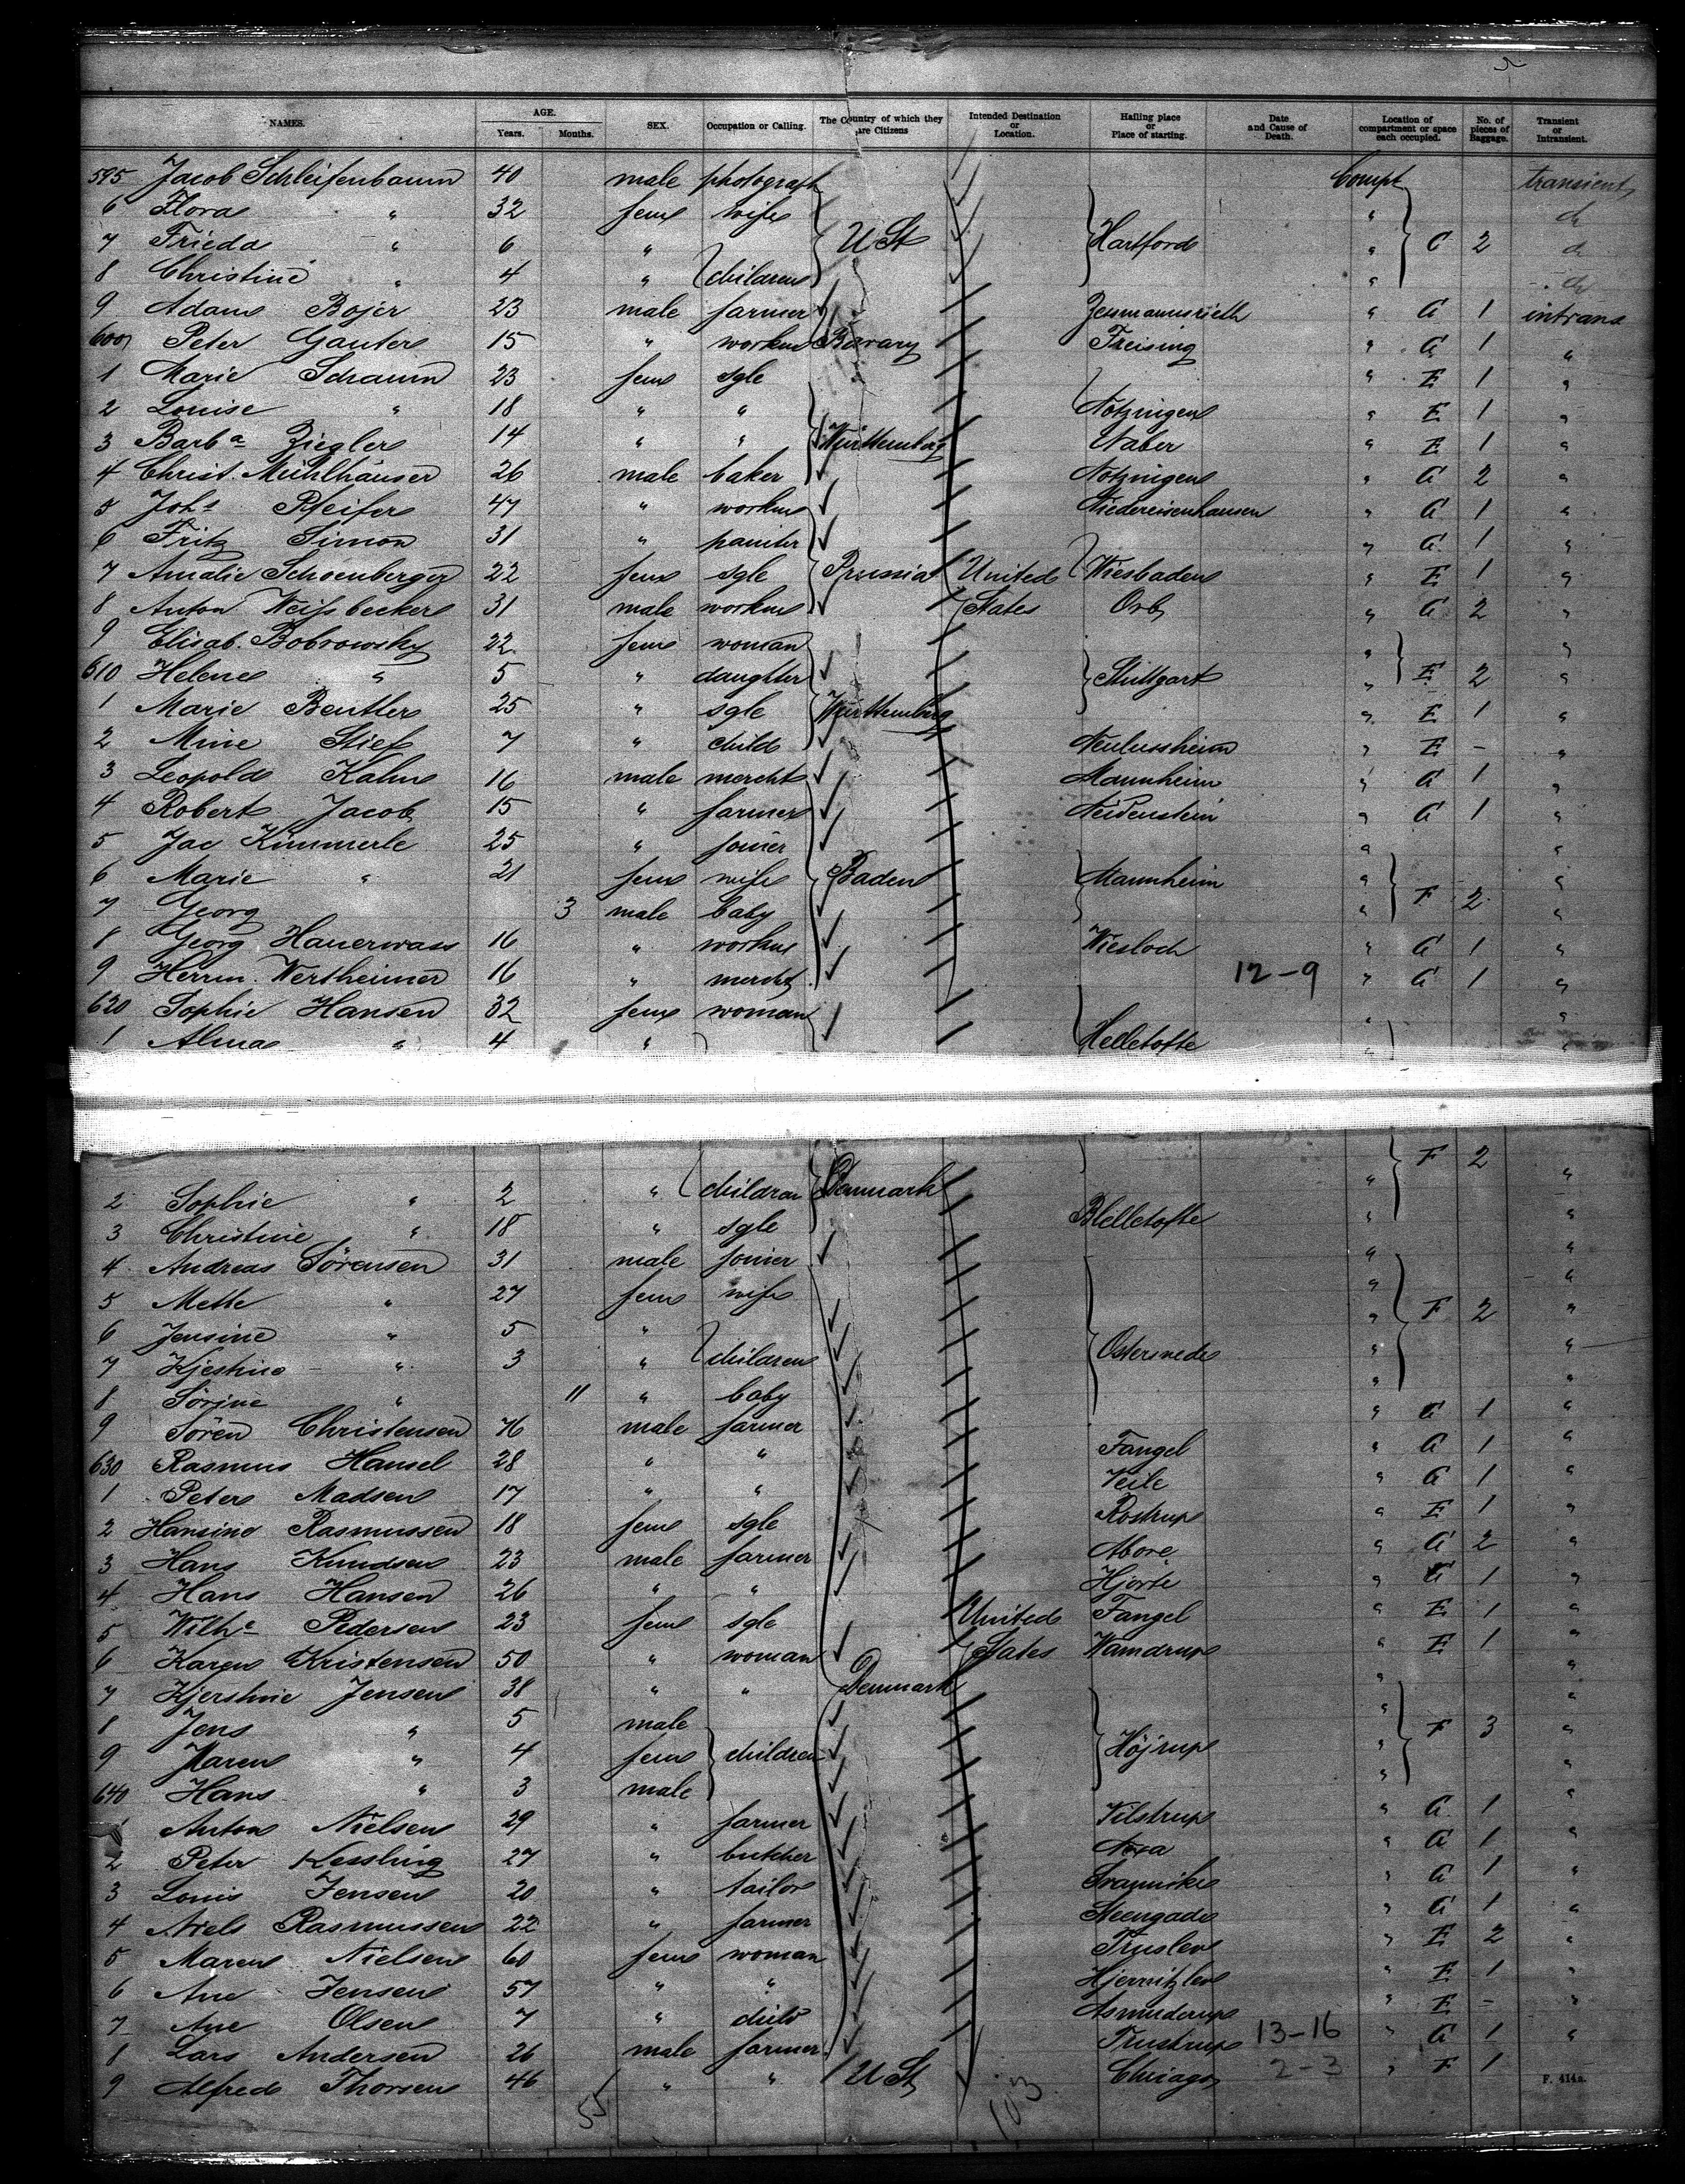 NAMES. AGE. Years. Months. SEX. Occupation or Calling. The Country of which they are Citizens Intended Destination or Location. Hailing place or Place of starting. Date and Cause of Death. Location of compartment or space each occupied. No. of pieces of Baggage. Transient or Intransient.
595 Jacob Schleifenbaum 40 male photograph Compt transient
6 Flora " 32 fem wife "
7 Frieda " 6 " U St Hartford " C 2
8 Christine " 4 " children "
9 Adam Bojer 23 male farmer " G 1 intrans
600 Peter Gauter 15 " workm Bavary Freising " G 1 "
1 Marie Schaum 23 fem sgle " E 1 "
2 Louise " 18 " " Notzingen " E 1 "
3 Barba Ziegler 14 " " Württemberg Naber " E 1 "
4 Christ. Mühlhäuser 26 male baker Notzingen " G 2 "
5 Johs Pfeifer 47 " workm Niedereisenhausen " G 1 "
6 Fritz Simon 31 " painter " G 1 "
7 Amalie Schoenberger 22 fem sgle Prussia United Wiesbaden " E 1 "
8 Anton Weissbecker 31 male workm States Orb " G 2 "
9 Elisab. Bobrowsky 22 fem woman " "
610 Helene " 5 " daughter Stuttgart " E 2 "
1 Marie Beutler 25 " sgle Württemberg " E 1 "
2 Mine Stief 7 " child Neulussheim " E - "
3 Leopold Kahn 16 male mercht Mannheim " G 1 "
4 Robert Jacob 15 " farmer Neidenstein " G 1 "
5 Jac Kimmerle 25 " joiner " "
6 Marie " 21 fem wife Baden Mannheim " F 2 "
7 Georg 3 male baby " "
8 Georg Hauerwass 16 " workm Wiesloch " G 1 "
9 Herrm. Wertheimer 16 " mercht 12-9 " G 1 "
620 Sophie Hansen 32 fem woman " "
1 Alma " 4 " Helletofte " "
F 2
2 Sophie " 2 " children Denmark " "
3 Christine " 18 " sgle Blelletofte " "
4 Andreas Sörensen 31 male joiner " "
5 Mette " 27 fem wife " "
6 Jensine " 5 " " F 2 "
7 Kjestine " 3 " children Ostersnede " "
8 Sörine " 11 " baby " "
9 Sören Christensen 76 male farmer " G 1 "
630 Rasmus Hansel 28 " " Fangel " G 1 "
1 Peter Madsen 17 " " Veile " G 1 "
2 Hansine Rasmussen 18 fem sgle Rostrup " E 1 "
3 Hans Knudsen 23 male farmer Abore " G 2 "
4 Hans Hansen 26 " " Hjorte " G 1 "
5 Wilhe Pedersen 23 fem sgle United Fangel " E 1 "
6 Karen Kristensen 50 " woman States Wamdrup " E 1 "
7 Kjerstine Jensen 38 " " Denmark " "
8 Jens " 5 male " F 3 "
9 Maren " 4 fem children Höjrup " "
640 Hans " 3 male " "
Anton Nielsen 29 " farmer Vilstrup " G 1
2 Peter Kessling 27 " butcher " G 1 "
3 Louis Jensen 20 " tailor " G 1 "
4 Niels Rasmussen 22 " farmer Steengade " G 1 "
5 Maren Nielsen 60 fem woman " E 2 "
6 Ane Jensen 57 " " " E 1 "
7 Ane Olsen 7 " child Asmindrup " E - "
8 Lars Andersen 26 male farmer Trustrup 13-16 " G 1 "
9 Alfred Thorsen 46 " " U St Chicago 2-3 " F 1
55 103 F. 414a.